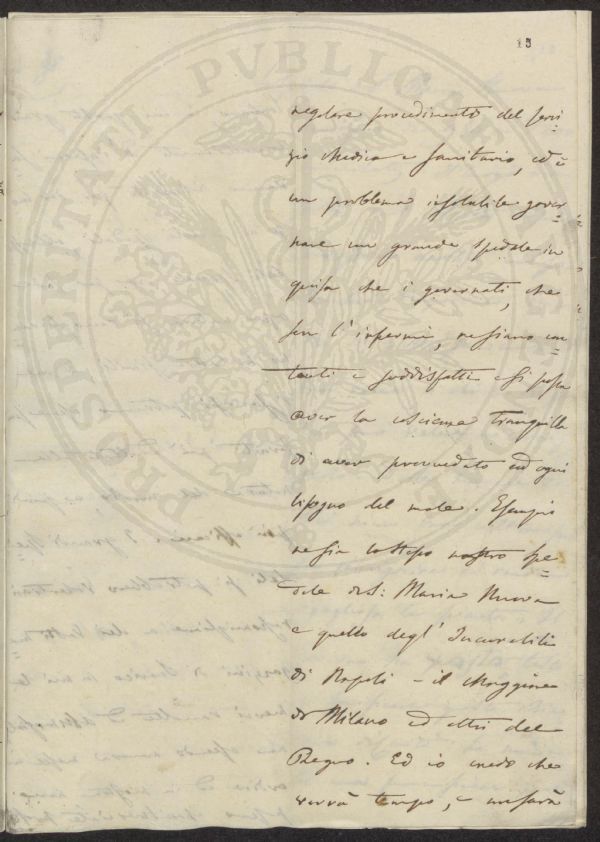 13
PROSPERITATI PVBLICAE AVGENDAE
regolare procedimento del servi=
zio Medico e Sanitario, ed è
un problema insolubile gover=
nare un grande spedale in
guisa che i governati, che
son l'infermi, ne siano con=
tenti e soddisfatti e si possa
aver la coscienza tranquilla
di aver provveduto ad ogni
bisogno del male. Esempio
ne sia lo stesso nostro Spe=
dale di S: Maria Nuova
e quello degl'Incurabili
di Napoli - il Maggiore
di Milano ed altri del
Regno. Ed io credo che
verrà tempo, e non sarà